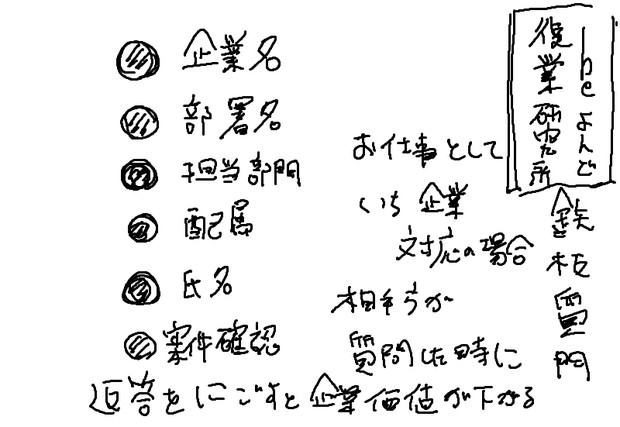 よんで
復業研究所
鉄板質問
企業名
部署名
担当部門
配属
氏名
案件確認
お仕事として
いち企業
対応の場合
相手方が
質問した時に
返答をにごすと企業価値が下がる